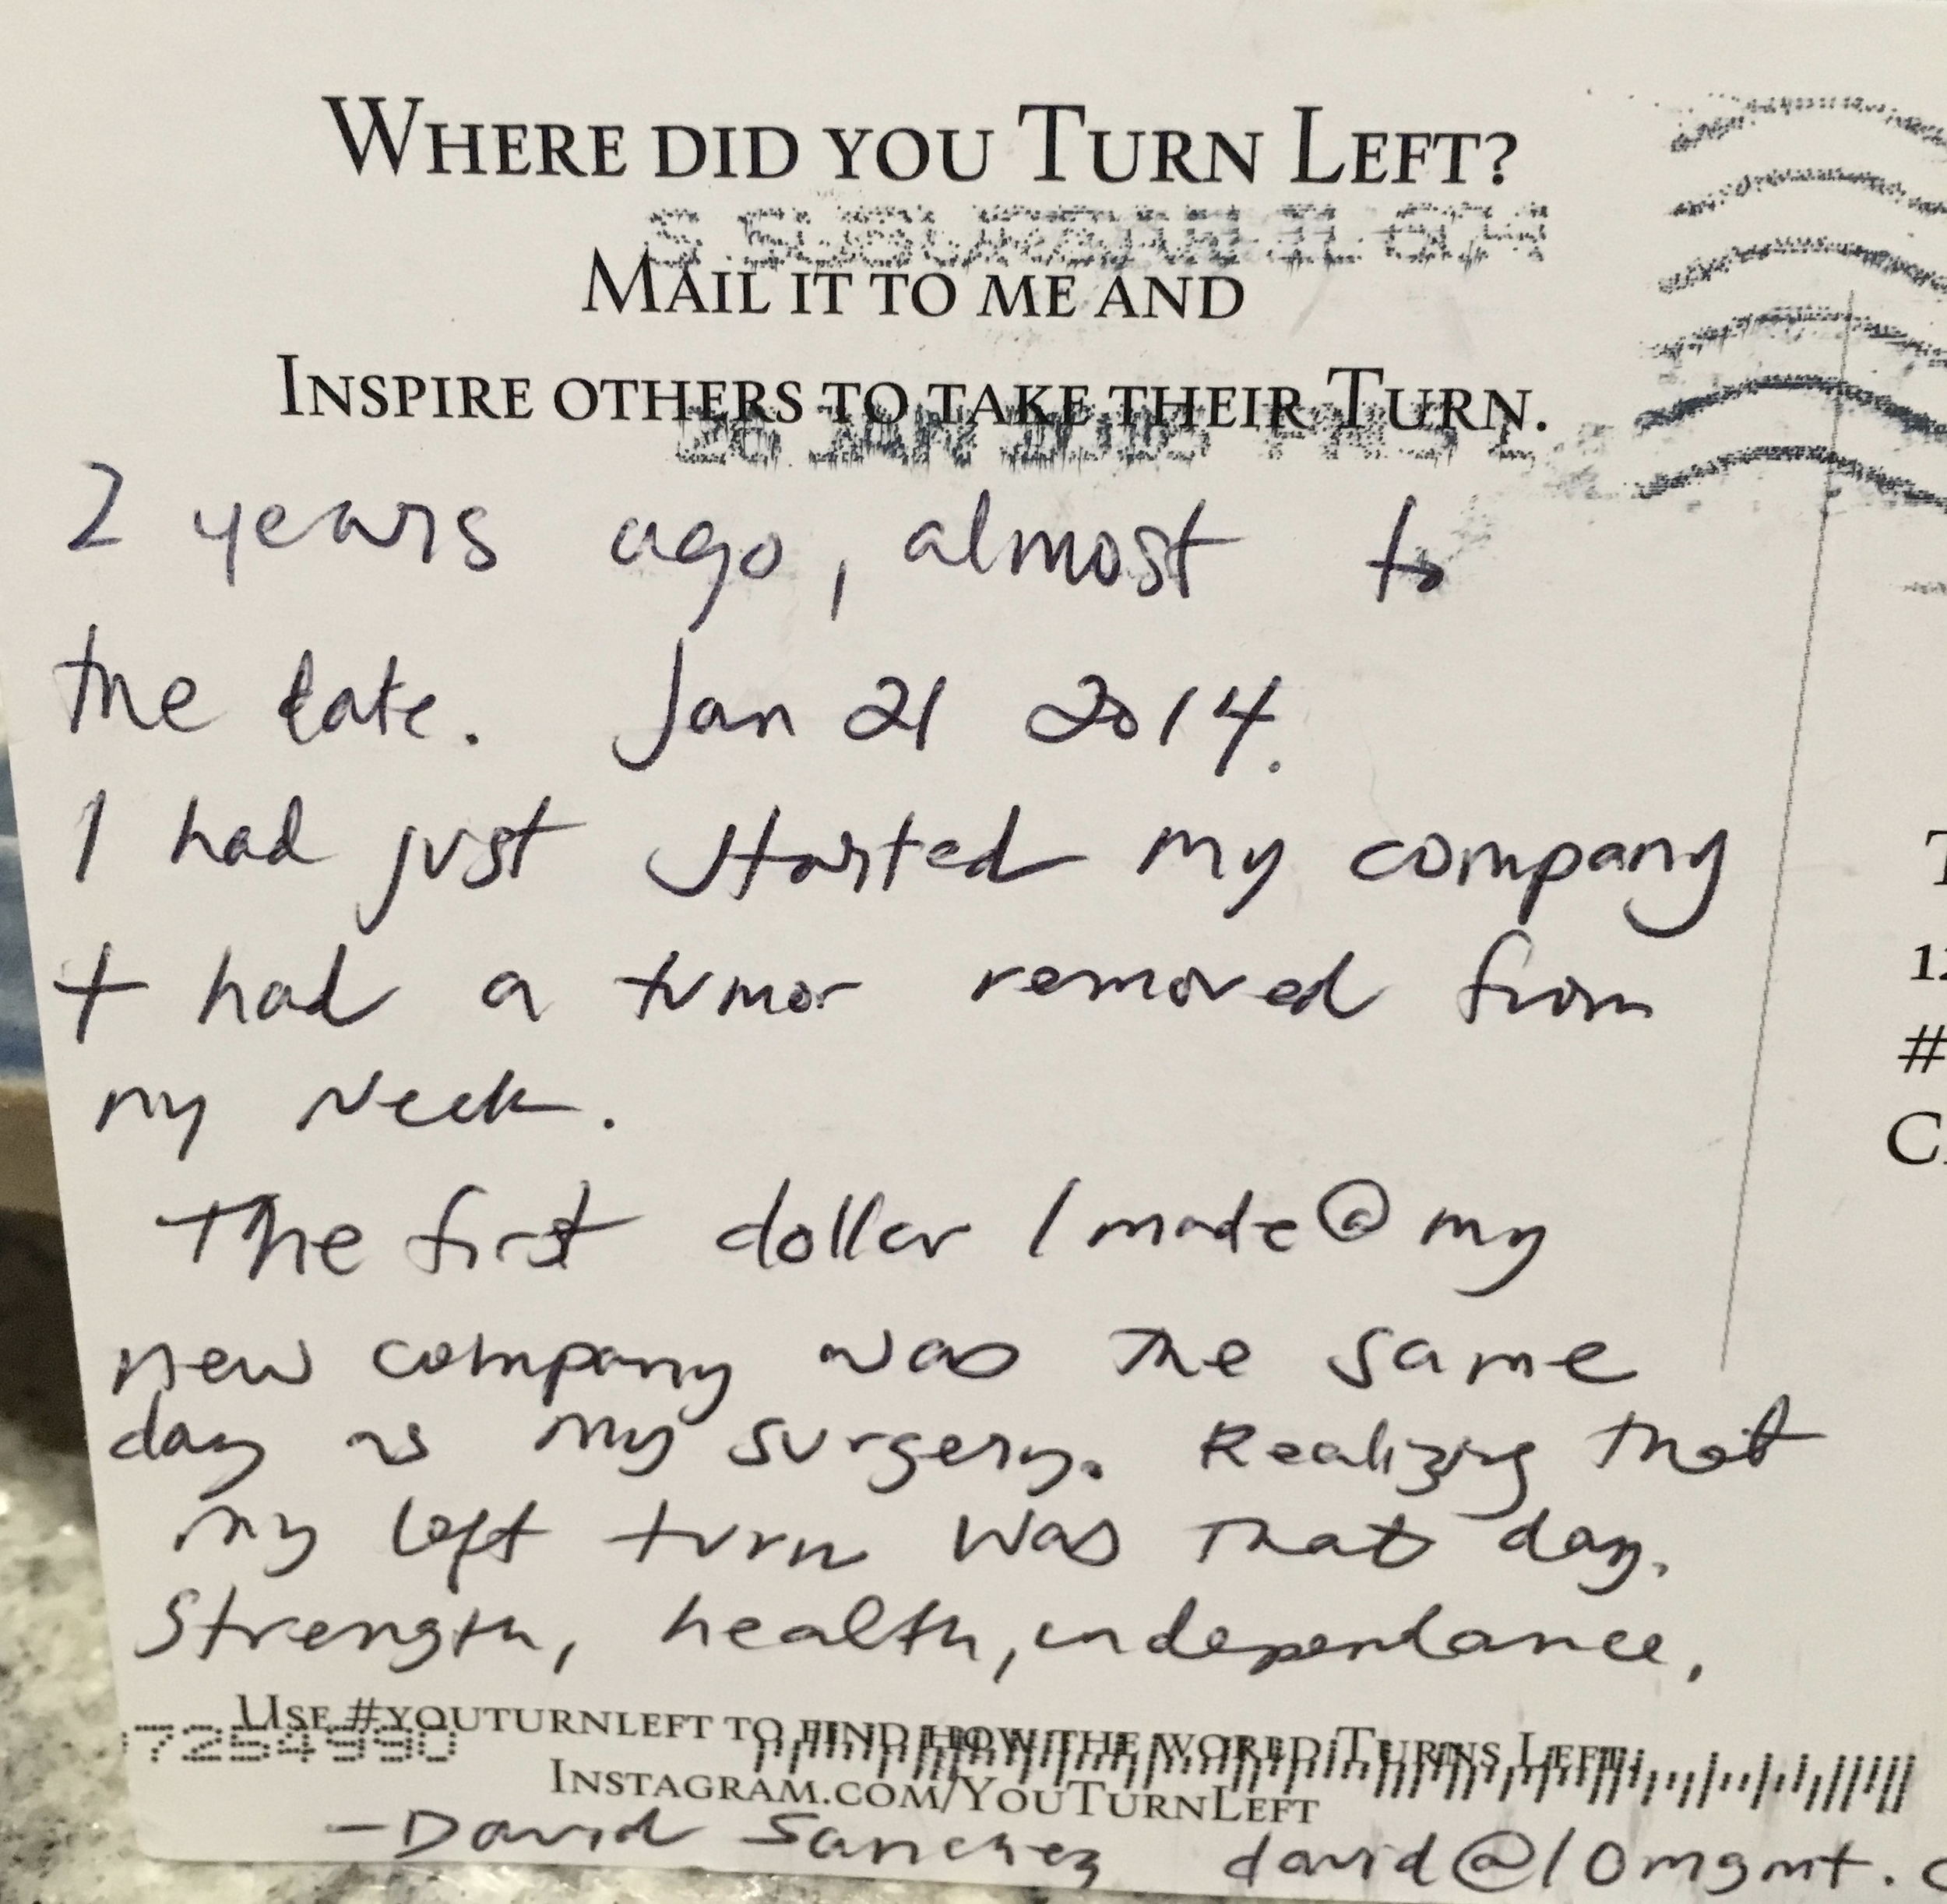 WHERE DID YOU TURN LEFT?
S SUBURBAN IL 604
MAIL IT TO ME AND
INSPIRE OTHERS TO TAKE THEIR TURN.
26 JAN PM 5 L
2 years ago, almost to
the date. Jan 21 2014.
I had just started my company
+ had a tumor removed from
my Neck.
The first dollar I made @ my
new company was the same
day as my surgery. Realizing that
my left turn was that day.
Strength, health, independance,
USE #YOUTURNLEFT TO FIND HOW THE WORLD TURNS LEFT.
7254990
INSTAGRAM.COM/YOUTURNLEFT
-David Sanchez david@10mgmt.c
T
12
#
C